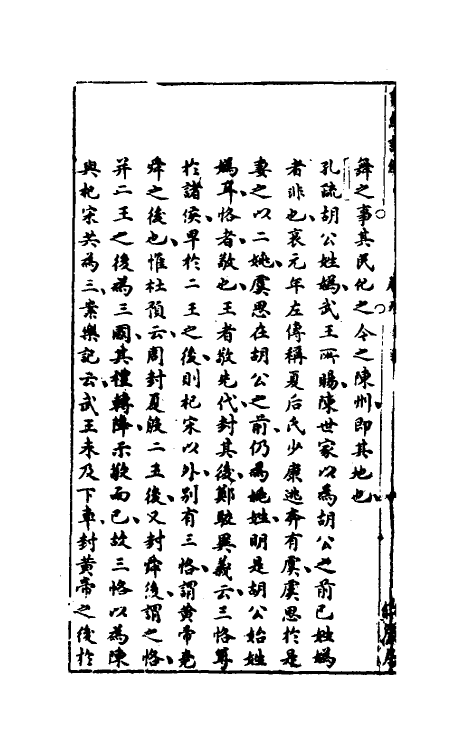 舜之事其民化之今之陳州即其地也
孔疏胡公姓媯武王所賜陳世家以為胡公之前已姓媯
者非也哀元年左傳稱夏后氏少康逃奔有虞虞思於是
妻之以二姚虞思在胡公之前仍為姚姓明是胡公始姓
媯耳恪者敬也王者敬先代封其後鄭駮異義云三恪尊
於諸侯卑於二王之後則杞宋以外别有三恪謂黄帝堯
舜之後也惟杜預云周封夏殷二王後又封舜後謂之恪
并二王之後為三國其禮轉降示敬而已故三恪以為陳
與杞宋共為三案樂記云武王未及下車封黄帝之後於